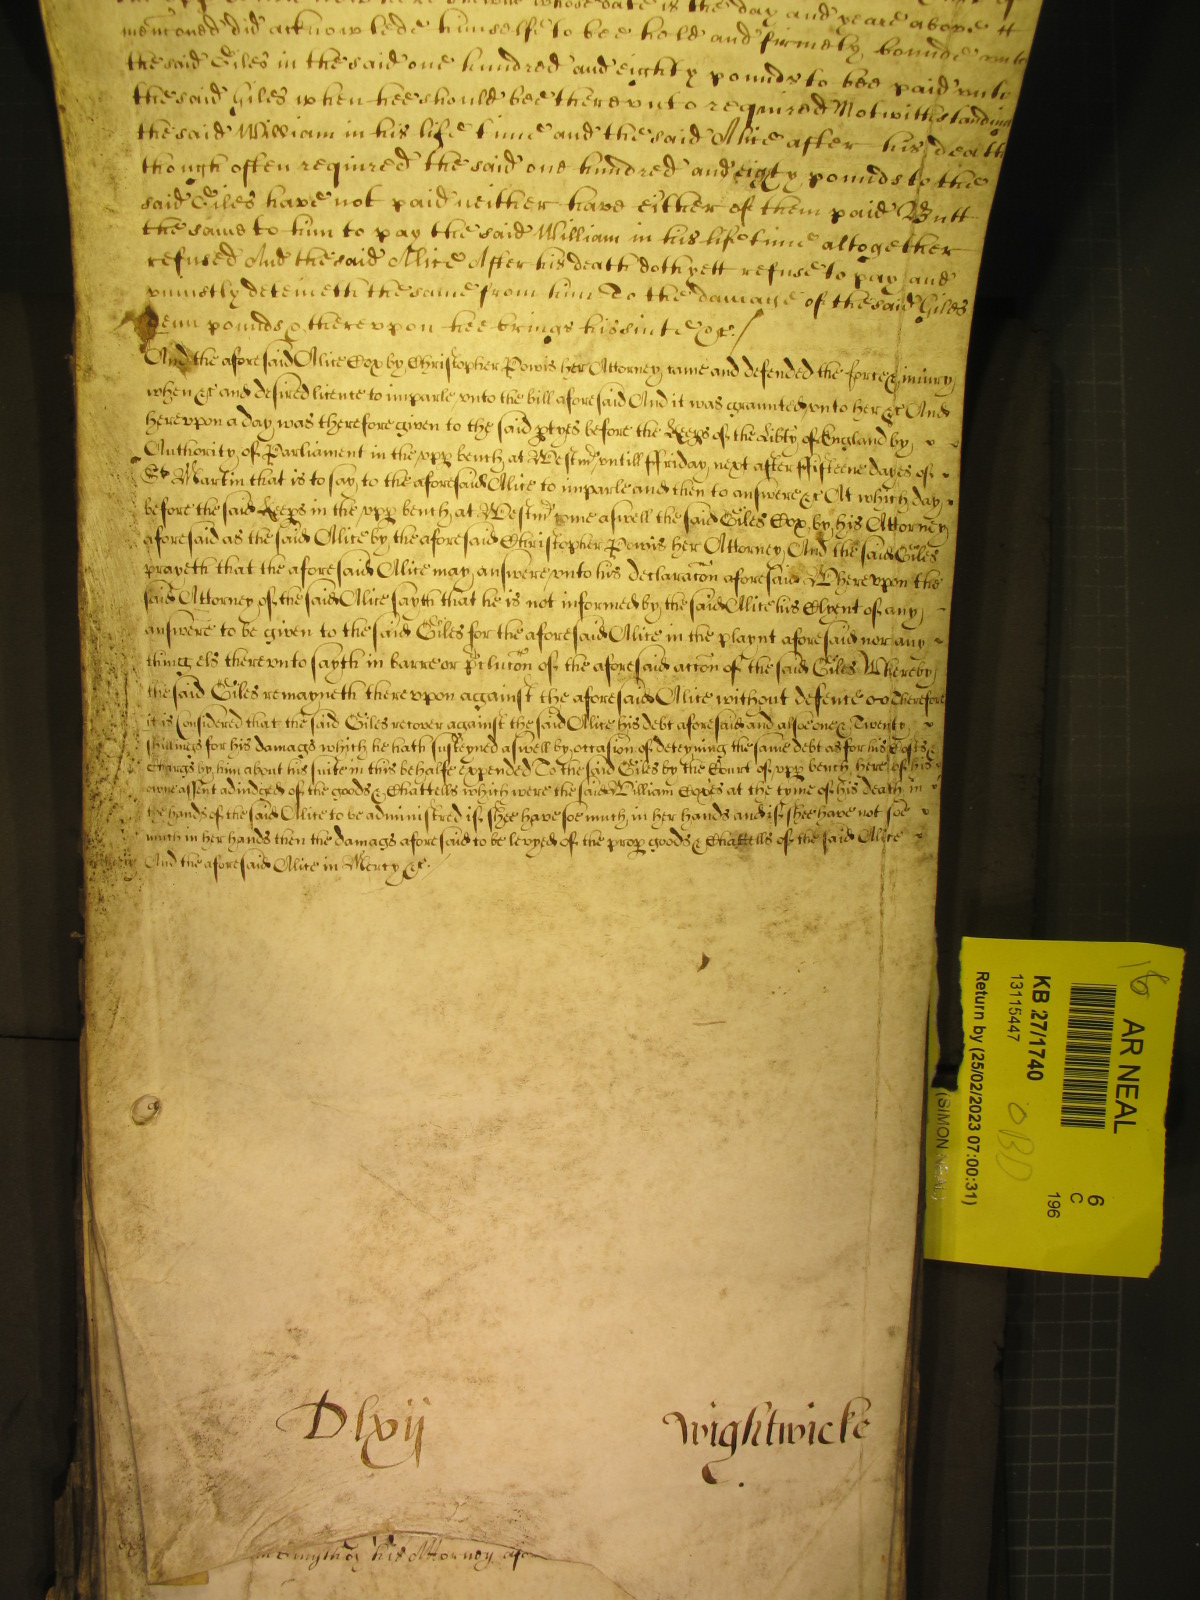 whose date is the day and yeare above
menconed did acknowledg himselfe to bee held and firmely bound unto
the said Giles in the said one hundred and eighty pounds to bee paid unto
the said Giles when hee should bee thereunto required Notwithstanding
the said William in his life time and the said Alice after his death
though often required the said one hundred and eighty pounds to the
said Giles have not paid neither have either of them paid Butt
the same to him to pay the said William in his life time altogether
refused And the said Alice After his death doth yett refuse to pay and
uniustly deteineth the same from him To the damage of the said Giles
Tenn pounds & thereupon hee brings his suite &c./
And the aforesaid Alice Cox by Christopher Powis her Attorney came and defended the force & iniury
when &c and desired licence to imparle unto the bill aforesaid And it was graunted unto her &c And
hereupon a day was therefore given to the said ptyes before the Keeps of the Libty of England by
Authority of Parliament in the upp bench at Westmr untill ffriday next after ffifteene dayes of
St Martin that is to say to the aforesaid Alice to imparle and then to answere &c At which day
before the said Keeps in the upp bench at Westmr come aswell the said Giles Cox by his Attorney
aforesaid as the said Alice by the aforesaid Christopher Powis her Attorney And the said Giles
prayeth that the aforesaid Alice may answere unto his declaracon aforesaid Whereupon the
said Attorney of the said Alice sayth that he is not informed by the said Alice his Clyent of any
answere to be given to the said Giles for the aforesaid Alice in the playnt aforesaid nor any
thing els thereunto sayth in barre or pclucon of the aforesaid accon of the said Giles Whereby
the said Giles remayneth thereupon against the aforesaid Alice without defence &c Therefore
it is Considered that the said Giles recover against the said Alice his debt aforesaid and alsoe one & Twenty
shillings for his damags which he hath susteyned aswell by occasion of deteyning the same debt as for his Costs &
Chargs by him about his suite in this behalfe expended To the said Giles by the Court of upp bench here of his
owne assent adiudged of the goods & Chattells which were the said William Coxes at the tyme of his death in
the hands of the said Alice to be administred if shee have soe much in her hands and if shee have not soe
much in her hands then the damags aforesaid to be levyed of the prop goods & Chattells of the said Alice
And the aforesaid Alice in Mercy &c.
Dlxij
Wightwicke
his Attorney
18
AR NEAL
KB 27/1740
13115447
Return by (25/02/2023 07:00:31)
(SIMON NEAL)
OBD
6
C
196